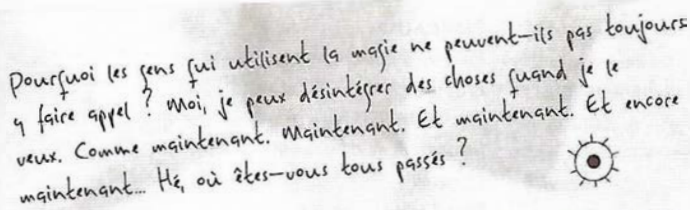 Pourquoi les gens qui utilisent la magie ne peuvent-ils pas toujours
y faire appel ? Moi, je peux désintégrer des choses quand je le
veux. Comme maintenant. Maintenant. Et maintenant. Et encore
maintenant... Hé, où êtes-vous tous passés ?